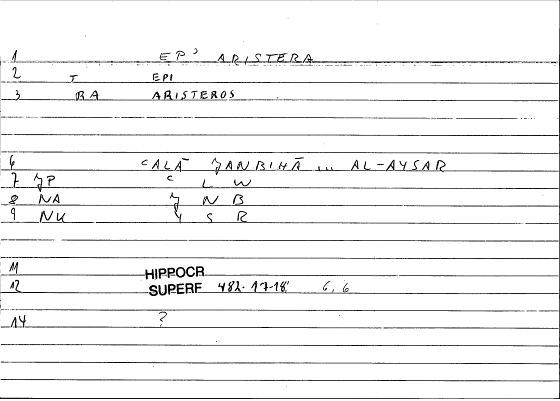 1 EP' ARISTERA
2 T EPI
3 RA ARISTEROS
6 ʿALĀ ǦANBIHĀ ... AL-AYSAR
7 ǦP ʿ L W
8 NA Ǧ N B
9 NK Y S R
11 HIPPOCR
12 SUPERF 482. 17-18. 6, 6
14 ?